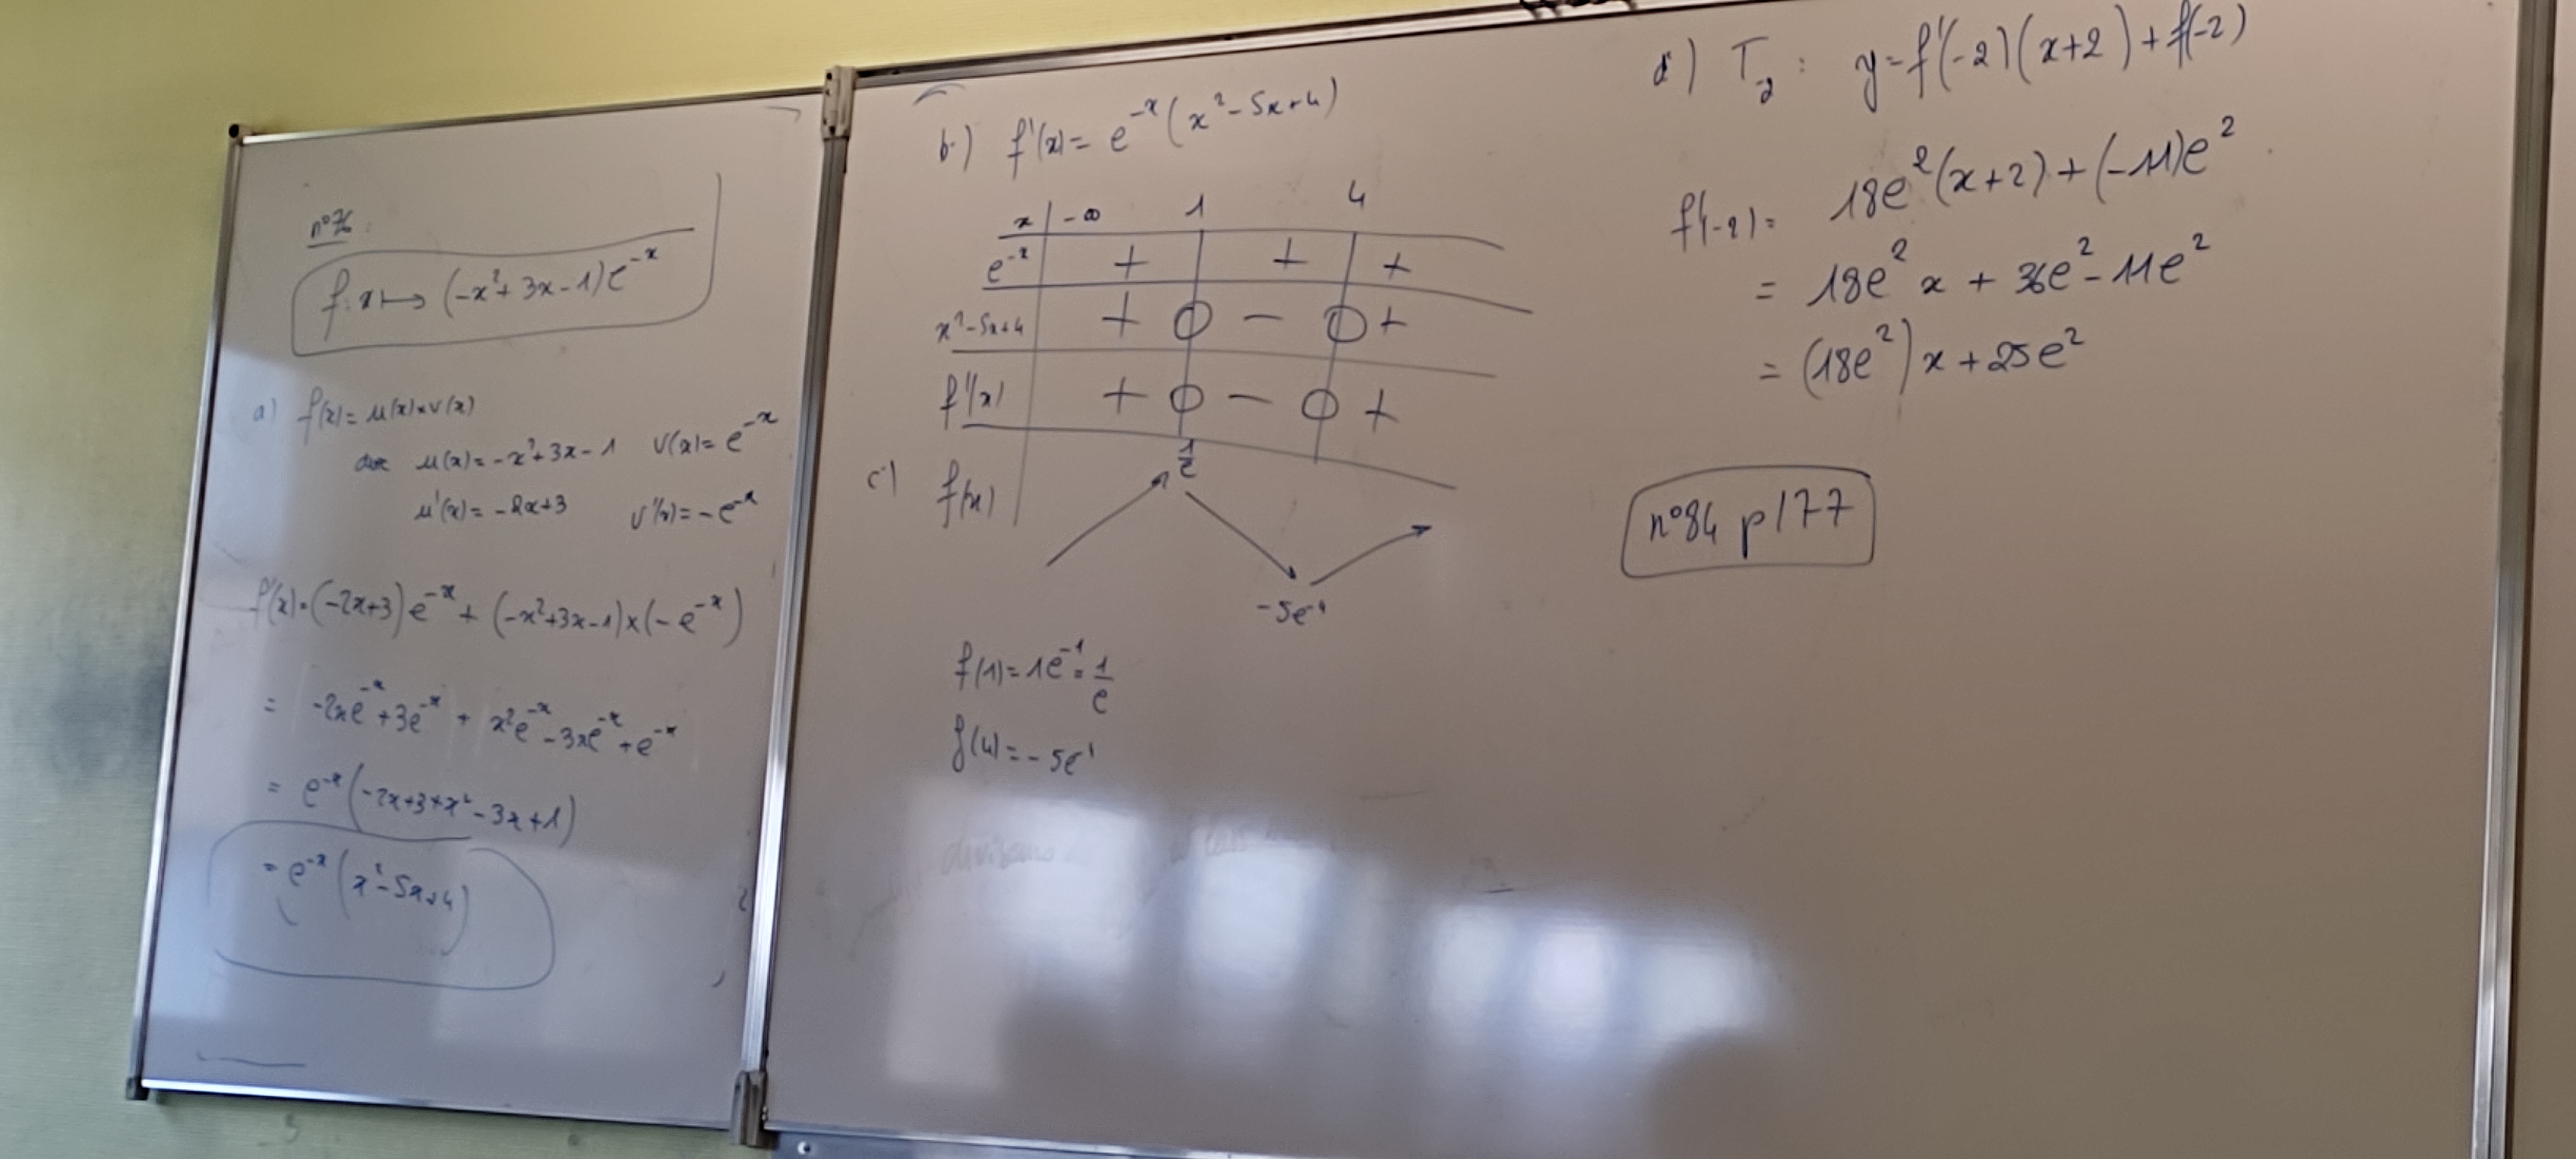 n°76
f: x ⟼ (-x²+3x-1)e⁻ˣ
a) f(x)= u(x)×v(x)
avec u(x)= -x²+3x-1 v(x)= e⁻ˣ
u'(x)= -2x+3 v'(x)= -e⁻ˣ
f'(x)=(-2x+3)e⁻ˣ + (-x²+3x-1)×(-e⁻ˣ)
= -2xe⁻ˣ+3e⁻ˣ + x²e⁻ˣ-3xe⁻ˣ+e⁻ˣ
= e⁻ˣ(-2x+3+x²-3x+1)
= e⁻ˣ(x²-5x+4)
b) f'(x)= e⁻ˣ(x²-5x+4)
x -∞ 1 4
e⁻ˣ + + +
x²-5x+4 + 0 - 0 +
f'(x) + 0 - 0 +
c) f(x) 1/e -5e⁻⁴
f(1)=1e⁻¹=1/e
f(4)=-5e⁻⁴
d) T₋₂ : y=f'(-2)(x+2)+f(-2)
f'(-2)= 18e²(x+2)+(-11)e²
= 18e²x + 36e²-11e²
= (18e²)x+25e²
n°84 p177